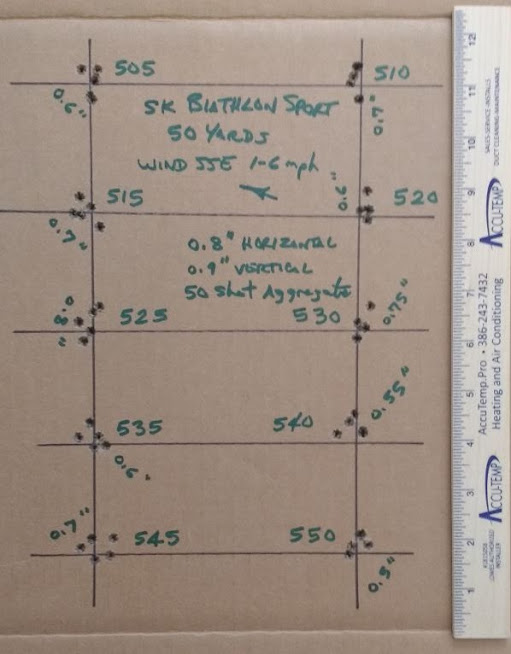 505
0.6"
510
0.7"
SK BIATHLON SPORT
50 YARDS
WIND SSE 1-6 mph
515
0.7"
0.6"
520
0.8" HORIZONTAL
0.9" VERTICAL
50 Shot Aggregate
0.8"
525
530
0.75"
535
0.6"
540
0.55"
0.7"
545
550
0.5"
12
11
10
9
8
7
6
5
4
3
2
1
SALES-SERVICE-INSTALLS
DUCT CLEANING-MAINTENANCE
ACCU-TEMP
AccuTemp.Pro • 386-243-7432
Heating and Air Conditioning
ACCU-TEMP
INSTALLER